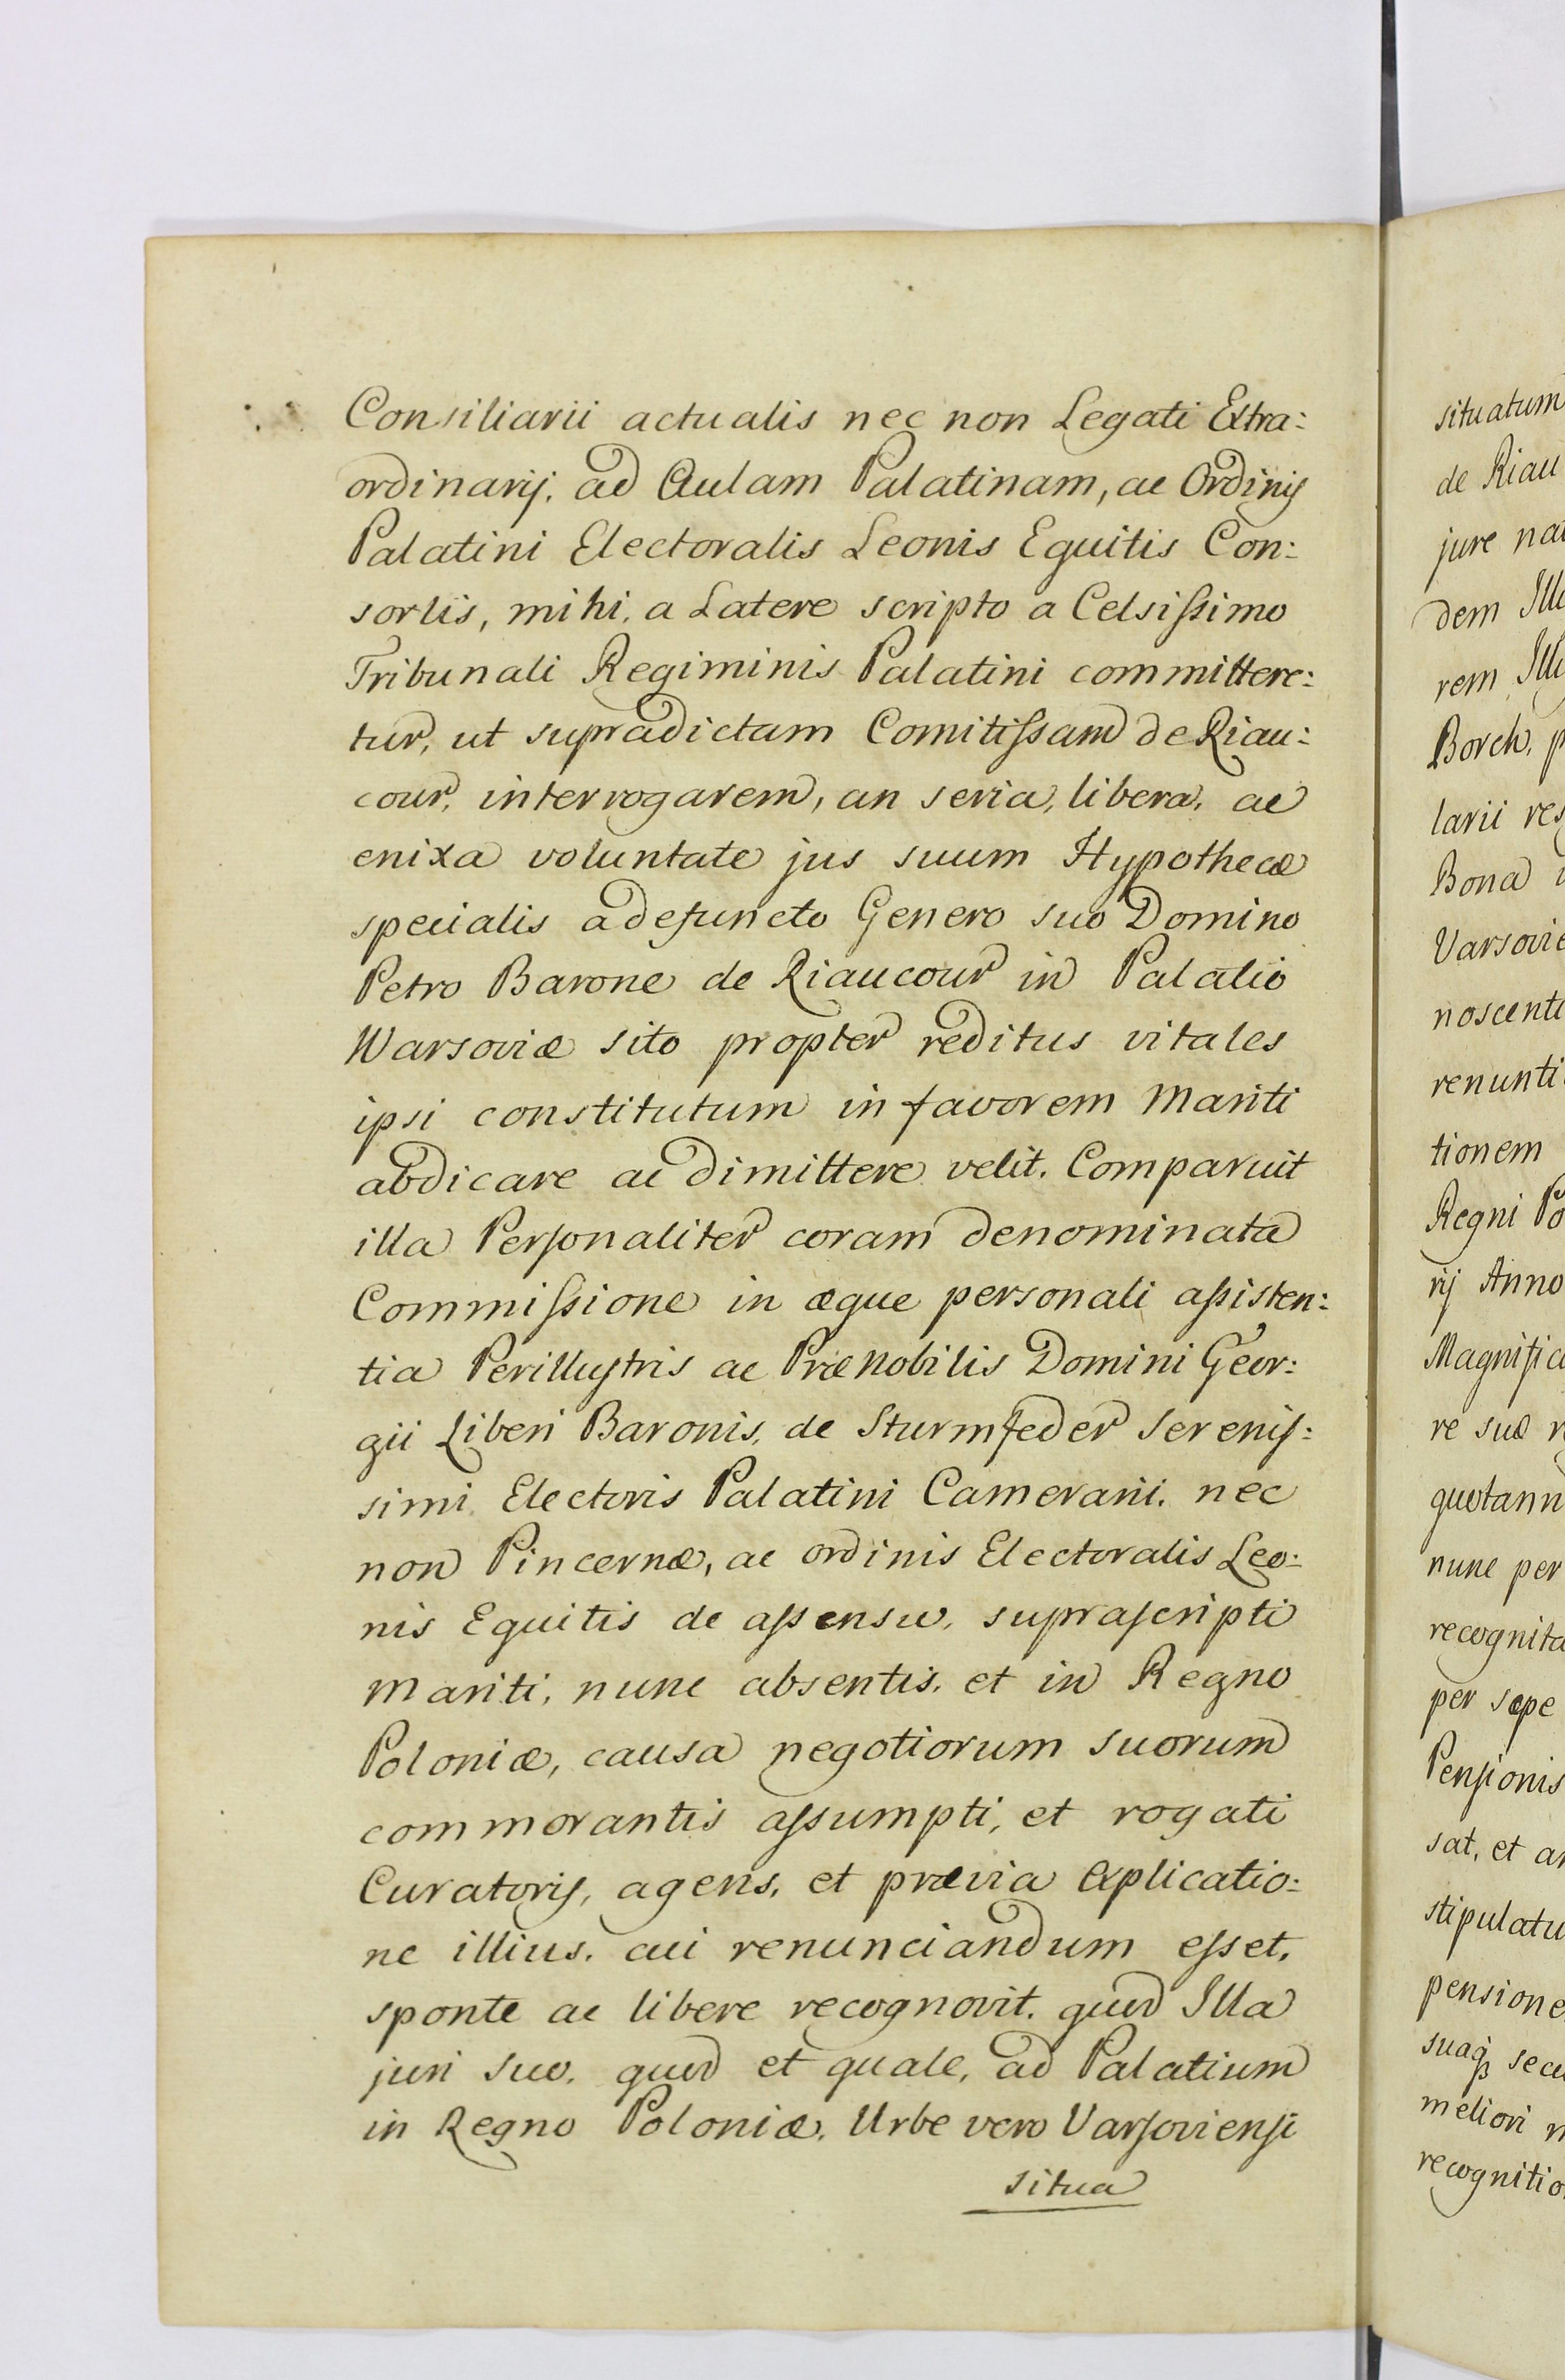 Consiliarii actualis nec non Legati Extra:
ordinarij, ad Aulam Palatinam, ac Ordinis
Palatini Electoralis Leonis Equitis Con:
sortis, mihi, a Latere scripto a Celsissimo
Tribunali Regiminis Palatini committere:
tur, ut supradictam Comitissam de Riau:
cour, interrogarem, an seria, libera, ac
enixa voluntate jus suum Hypothecæ
specialis a defuncto Genero suo Domino
Petro Barone de Riaucour in Palatio
Warsoviæ sito propter reditus vitales
ipsi constitutum in favorem Mariti
abdicare ac dimittere velit. Comparuit
illa Personaliter coram denominata
Commissione in æque personali assisten:
tia Perillustris ac Prænobilis Domini Geor:
gii Liberi Baronis, de Sturmfeder Serenis:
simi Electoris Palatini Camerarii, nec
non Pincernæ, ac ordinis Electoralis Leo:
nis Equitis de assensu, suprascripti
Mariti, nunc absentis, et in Regno
Poloniæ, causa negotiorum suorum
commorantis assumpti, et rogati
Curatoris, agens, et prævia explicatio:
ne illius, cui renunciandum esset,
sponte ac libere recognovit, quod Illa
juri suo, quod et quale, ad Palatium
in Regno Poloniæ, Urbe vero Varsoviensi
situa
situatum
de Riau
jure nat
dem Illu
rem Illu
Borch, p
larii res
Bona
Varsovie
noscent
renunti
tionem
Regni Po
rij Anno
Magnific
re suæ
quotann
nunc per
recognita
per sæpe
Pensionis
sat, et an
stipulatu
pensione
suaq secu
meliori
recognitio